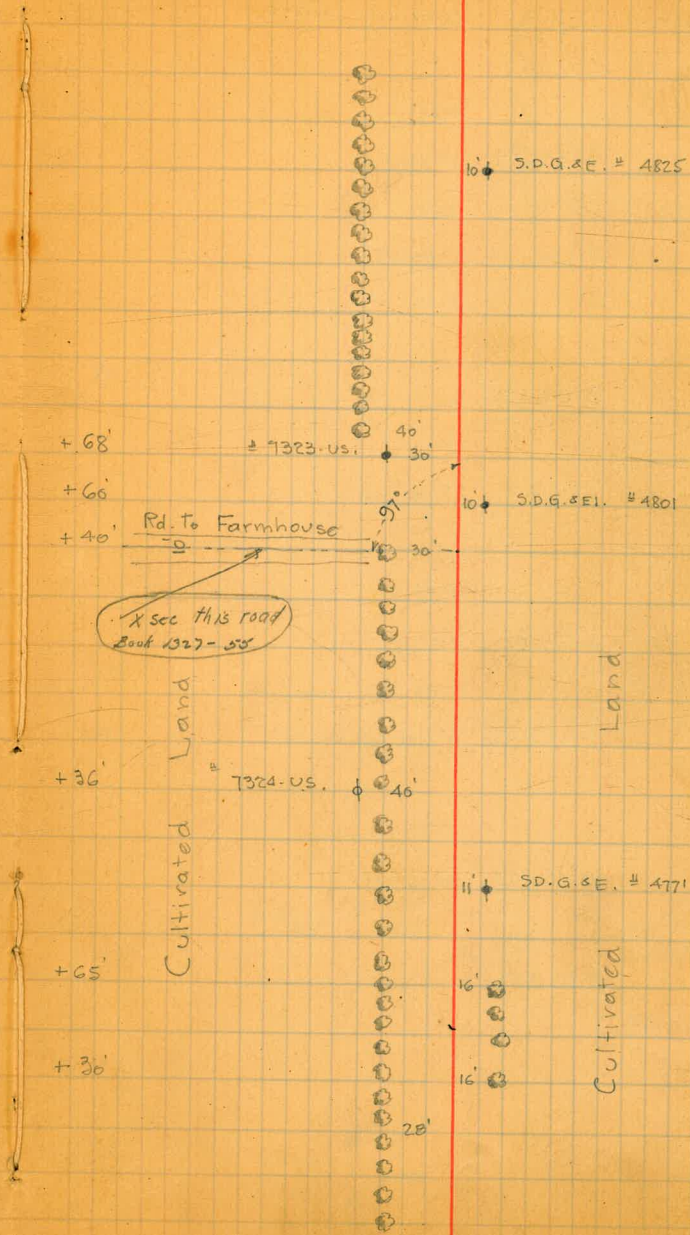 10' S.D.G.&E. # 4825
40'
+ 68' # 7323-US. 30'
+ 60' 10' S.D.G.&El. # 4801
97°
+ 40' Rd. To Farmhouse
10 30'
X sec this road
Book 1327-55
Cultivated Land
Cultivated Land
+ 36' # 7324-US. 40'
11' SD.G.&E. # 4771
+ 65' 16'
+ 30' 16'
28'